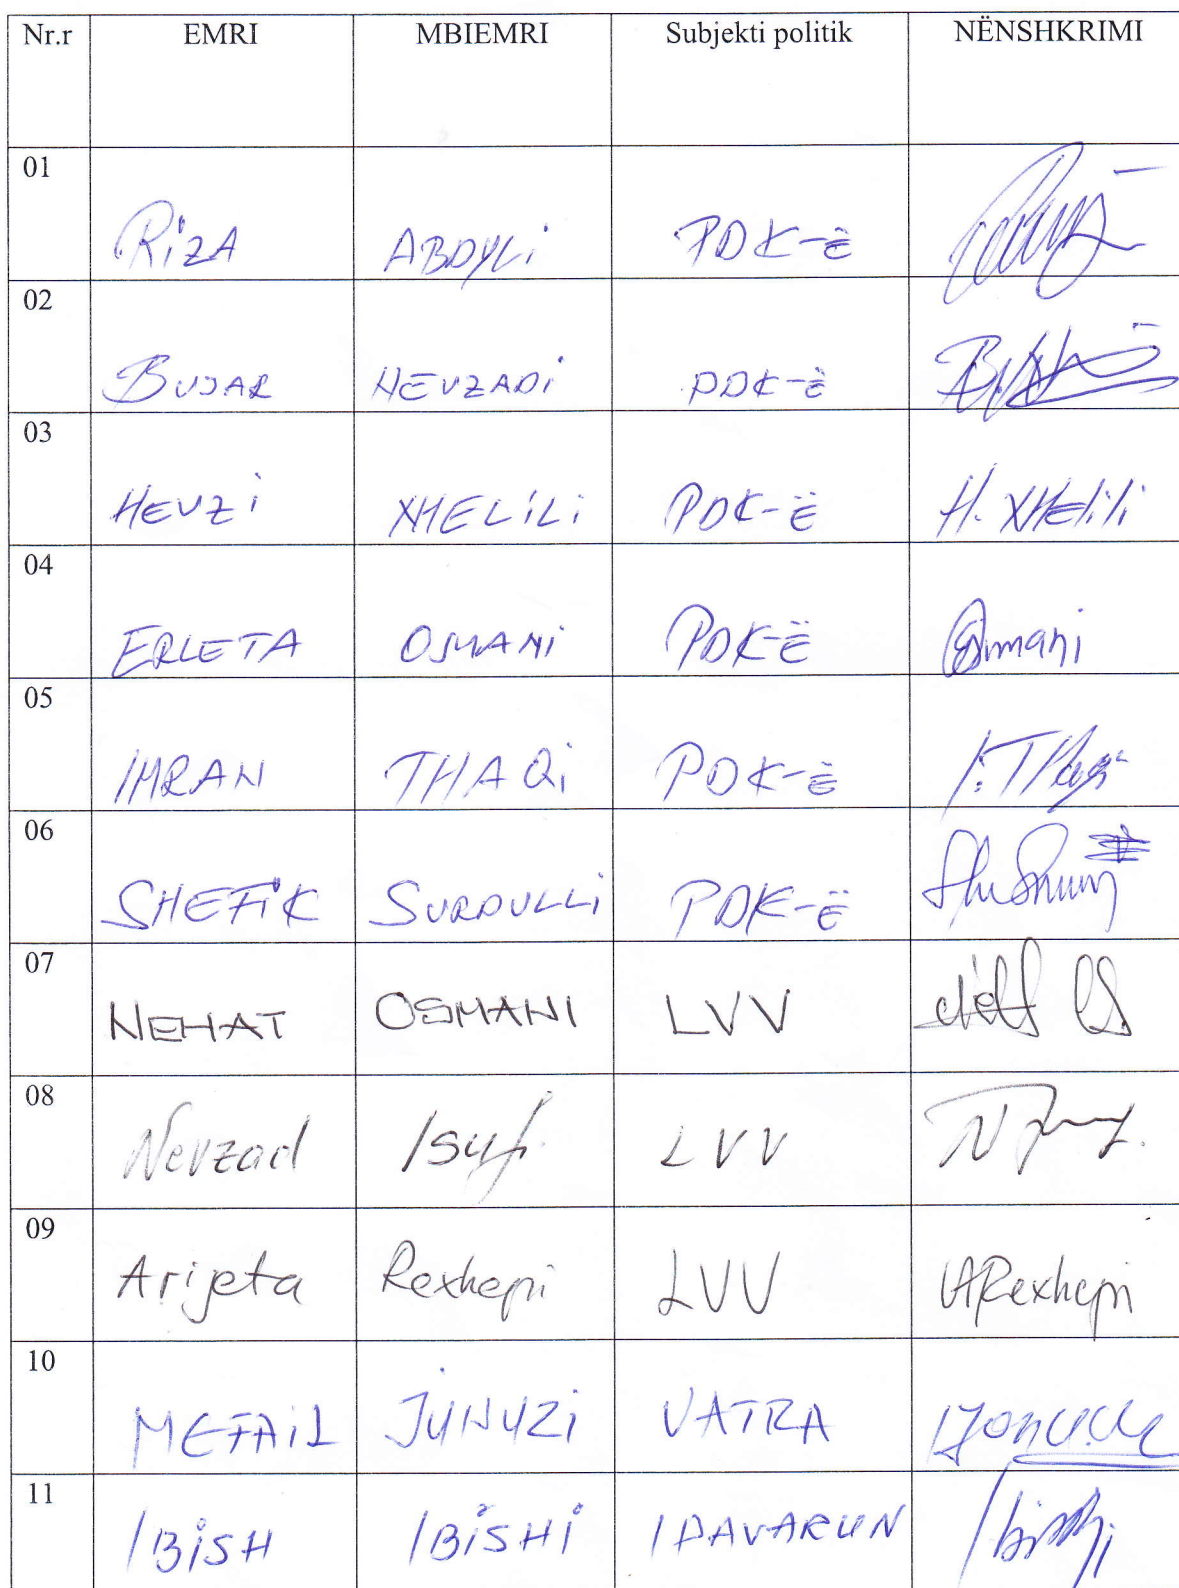 Nr.r EMRI MBIEMRI Subjekti politik NËNSHKRIMI
01 RizA ABDYLi PDK-ë
02 BUJAR NEVZADi PDK-ë
03 HEVZi XHELiLi PDK-Ë H. XHElili
04 ERLETA OSMANi PDK-Ë Osmani
05 IMRAN THAQi PDK-ë
06 SHEFiK SURDULLi PDK-Ë
07 NEHAT OSMANI LVV
08 Nevzad Isufi LVV
09 Arijeta Rexhepi LVV ARexhepi
10 MEFAiL JYNYZi VATRA
11 IBiSH IBiSHi Ibishi